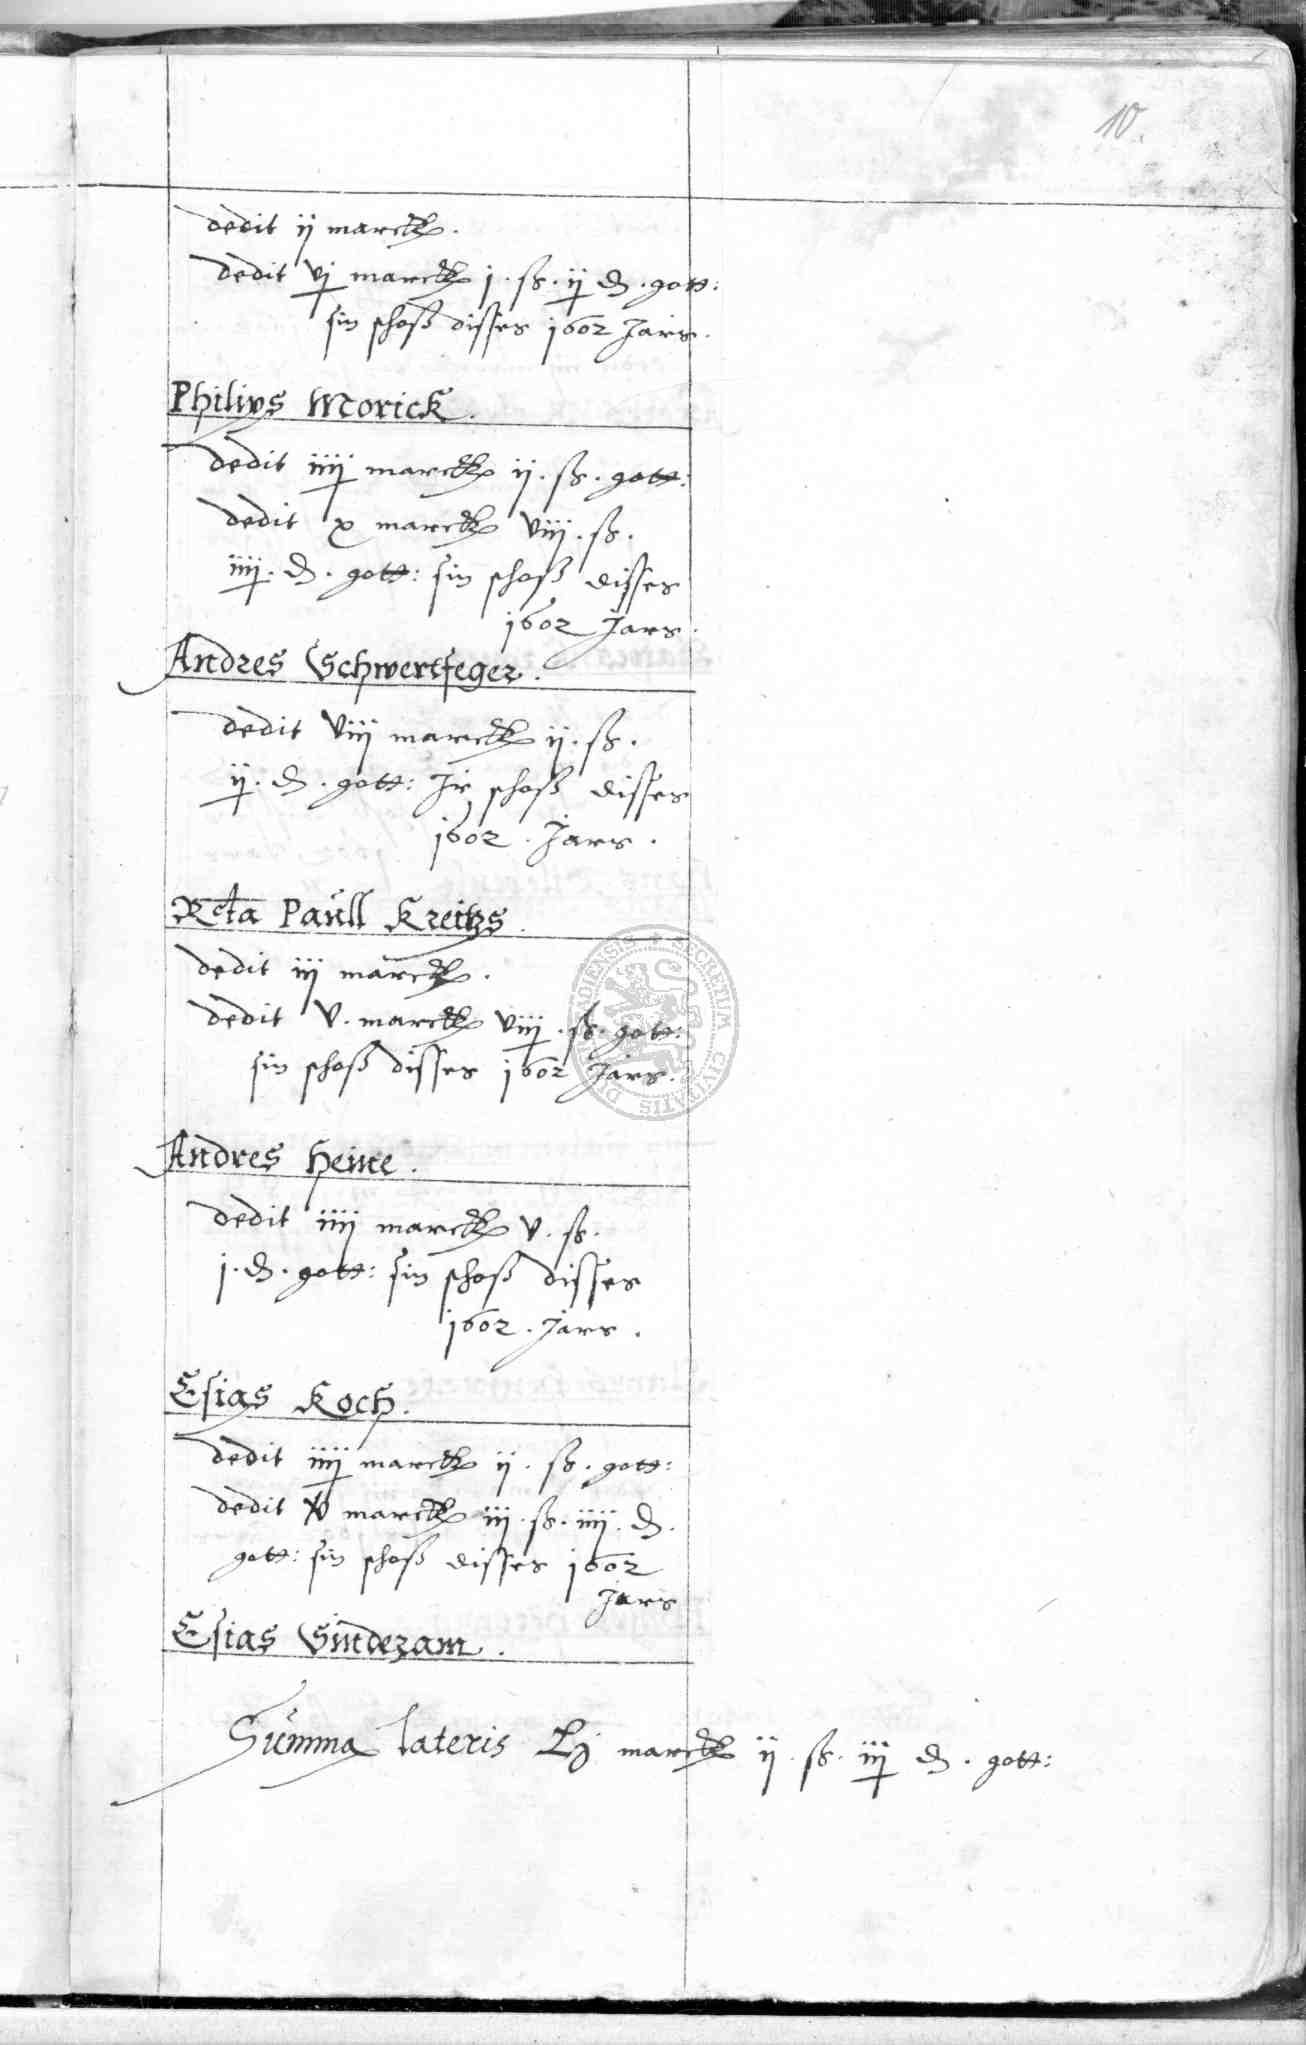 10
dedit ij marck.
dedit vj marck j. ß. ij ₰. gott:
sin schoß disses 1602 Jars.
Philips Morick.
dedit iiij marck ij. ß. gott:
dedit x marck viij. ß.
iiij. ₰. gott: sin schoß disses
1602 Jars.
Andres Schwertfeger.
dedit viij marck ij. ß.
ij. ₰. gott: Jr schoß disses
1602. Jars.
Rcta Paull Kreitzs.
dedit iij marck.
dedit v. marck viij. ß. gott:
sin schoß disses 1602 Jars.
Andres Heine.
dedit iiij marck v. ß.
j. ₰. gott: sin schoß disses
1602. Jars.
Esias Koch.
dedit iiij marck ij. ß. gott:
dedit marck iij. ß. iiij. ₰.
gott: sin schoß disses 1602
Jars
Esias Sindezam.
Summa lateris Lj marck ij. ß. iij ₰. gott:
SECRETUM CIVITATIS